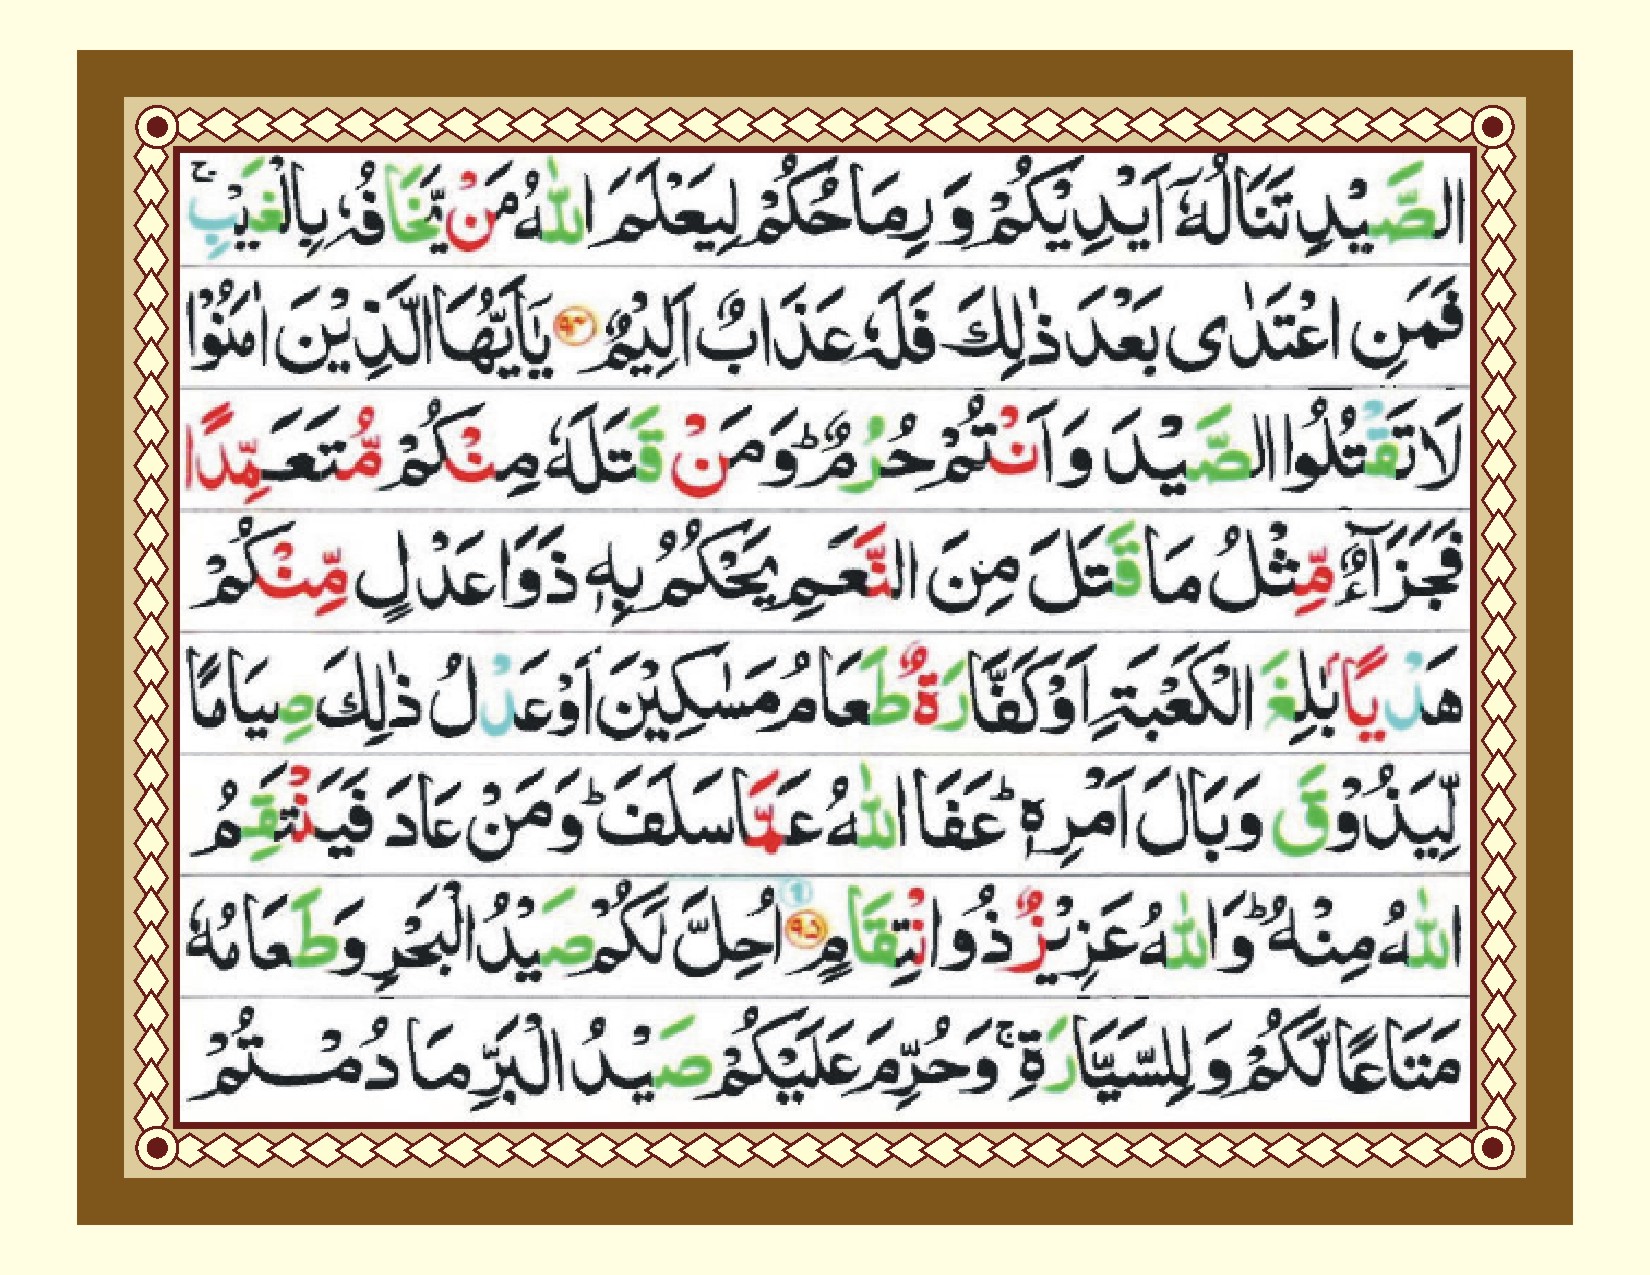 الصَّيْدِ تَنَالُهٗۤ اَيْدِيْكُمْ وَ رِمَاحُكُمْ لِيَعْلَمَ اللّٰهُ مَنْ يَّخَافُهٗ بِالْغَيْبِ ۚ
فَمَنِ اعْتَدٰى بَعْدَ ذٰلِكَ فَلَهٗ عَذَابٌ اَلِيْمٌ ﴿۹۴﴾ يٰۤاَيُّهَا الَّذِيْنَ اٰمَنُوْا
لَا تَقْتُلُوا الصَّيْدَ وَ اَنْتُمْ حُرُمٌ ؕ وَ مَنْ قَتَلَهٗ مِنْكُمْ مُّتَعَمِّدًا
فَجَزَآءٌ مِّثْلُ مَا قَتَلَ مِنَ النَّعَمِ يَحْكُمُ بِهٖ ذَوَا عَدْلٍ مِّنْكُمْ
هَدْيًۢا بٰلِغَ الْكَعْبَةِ اَوْ كَفَّارَةٌ طَعَامُ مَسٰكِيْنَ اَوْ عَدْلُ ذٰلِكَ صِيَامًا
لِّيَذُوْقَ وَبَالَ اَمْرِهٖ ؕ عَفَا اللّٰهُ عَمَّا سَلَفَ ؕ وَ مَنْ عَادَ فَيَنْتَقِمُ
اللّٰهُ مِنْهُ ؕ وَ اللّٰهُ عَزِيْزٌ ذُو انْتِقَامٍ ﴿۹۵﴾ اُحِلَّ لَكُمْ صَيْدُ الْبَحْرِ وَ طَعَامُهٗ
مَتَاعًا لَّكُمْ وَ لِلسَّيَّارَةِ ۚ وَ حُرِّمَ عَلَيْكُمْ صَيْدُ الْبَرِّ مَا دُمْتُمْ